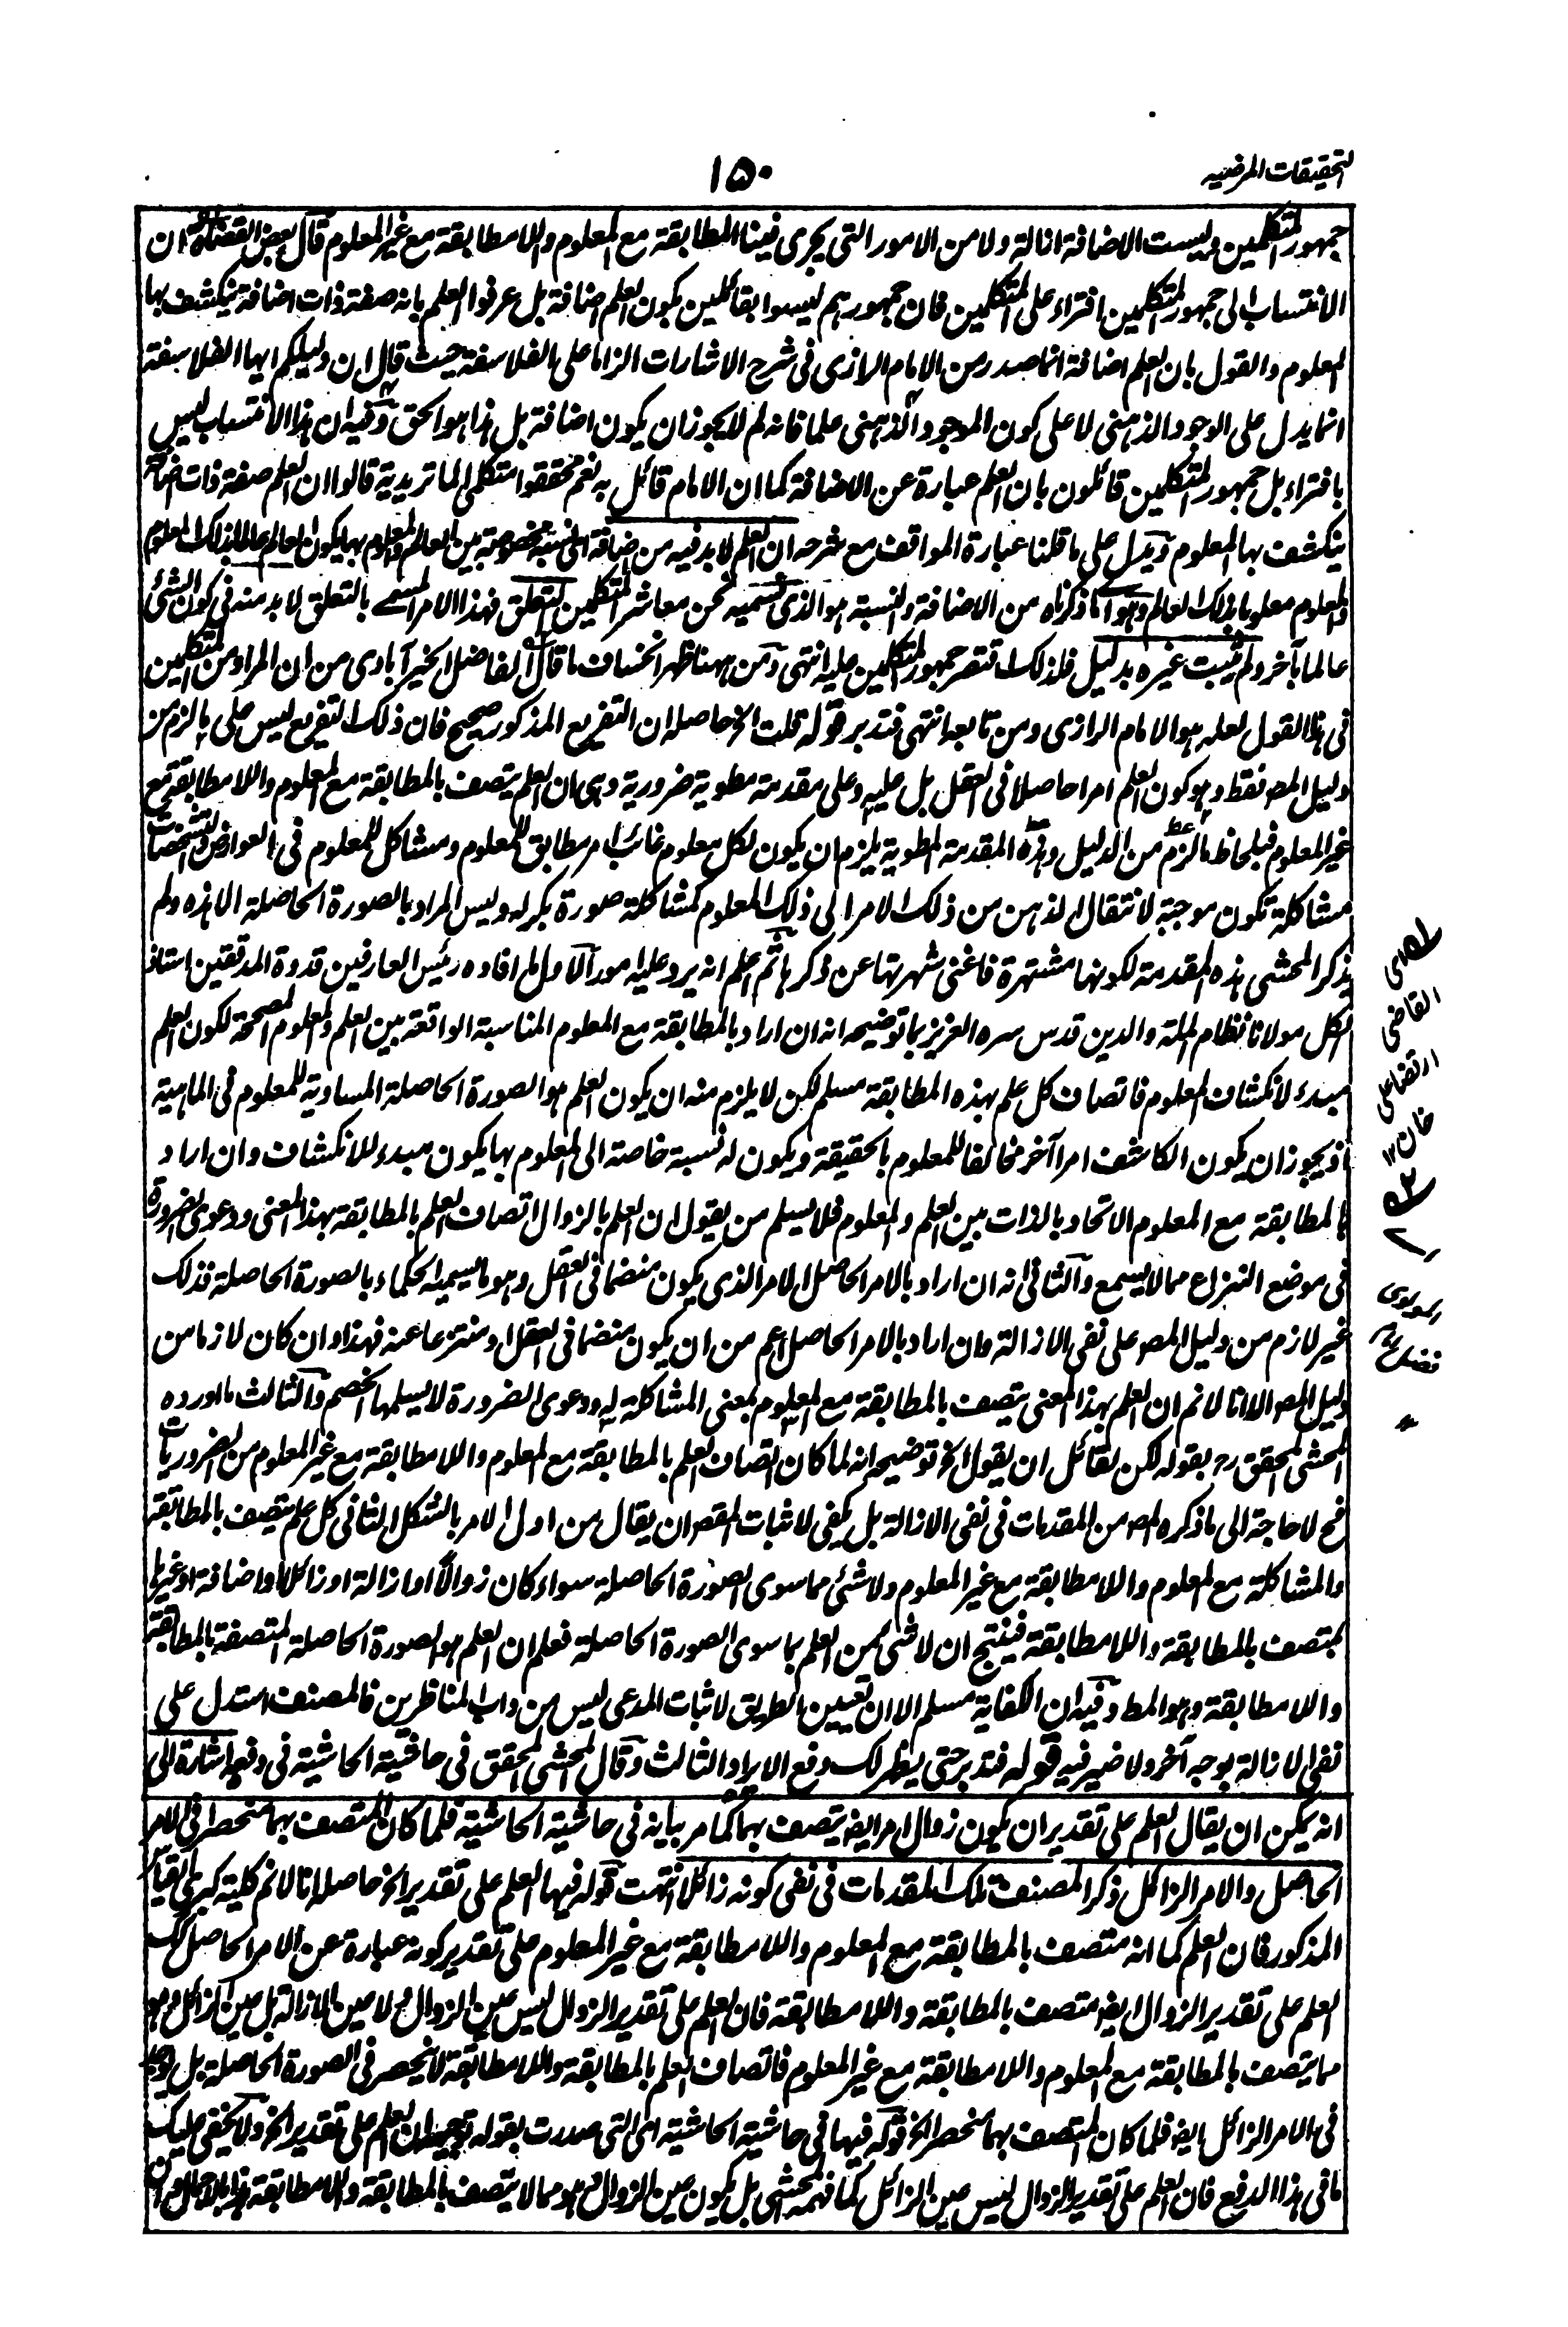 التحقيقات المرضيه
١٥٠
جمهور المتكلمين وليست الاضافة ازالة ولا من الامور التى يجرى فيها المطابقة مع المعلوم واللامطابقة مع غير المعلوم قال بعض القضاة ان
الانتساب الى جمهور المتكلمين افتراء على المتكلمين فان جمهورهم ليسوا بقائلين بكون العلم اضافة بل عرفوا العلم بانه صفة ذات اضافة ينكشف بها
المعلوم والقول بان العلم اضافة انما صدر من الامام الرازى فى شرح الاشارات الزاما على الفلاسفة حيث قال ان دليلكم ايها الفلاسفة
انما يدل على الوجود الذهنى لا على كون الموجود الذهنى علما فانه لم لا يجوز ان يكون اضافة بل هذا هو الحق وفيه ان هذا الانتساب ليس
بافتراء بل جمهور المتكلمين قائلون بان العلم عبارة عن الاضافة كما ان الامام قائل به نعم محققوا متكلمى الماتريدية قالوا ان العلم صفة ذات اضافة
ينكشف بها المعلوم ويدل على ما قلنا عبارة المواقف مع شرحه ان العلم لا بد فيه من اضافة اى نسبة مخصوصة بين العالم والمعلوم بها يكون العالم عالما بذلك المعلوم
والمعلوم معلوما لذلك العالم وهو اى ما ذكرناه من الاضافة والنسبة هو الذى نسميه نحن معاشر المتكلمين التعلق فهذا الامر المسمى بالتعلق لا بد منه فى كون الشئ
عالما بآخر ولم يثبت غيره بدليل فلذلك اقتصر جمهور المتكلمين عليه انتهى ومن ههنا ظهر انخساف ما قال الفاضل الخيرآبادى من ان المراد من المتكلمين
فى هذا القول لعله هو الامام الرازى ومن تابعه انتهى فتدبر قوله قلت الخ حاصله ان التفريع المذكور صحيح فان ذلك التفريع ليس على ما لزم من
دليل المصـ فقط وهو كون العلم امرا حاصلا فى العقل بل عليه وعلى مقدمة مطوية ضرورية وهى ان العلم يتصف بالمطابقة مع المعلوم واللامطابقة مع
غير المعلوم فبلحاظ ما لزم من الدليل وهذه المقدمة المطوية يلزم ان يكون لكل معلوم غائب امر مطابق للمعلوم ومشاكل للمعلوم فى العوارض والتشخصات
مشاكلة تكون موجبة لانتقال الذهن من ذلك الامر الى ذلك المعلوم كمشاكلة صورة بكر له وليس المراد بالصورة الحاصلة الا هذه ولم
يذكر المحشى هذه المقدمة لكونها مشتهرة فاغنى شهرتها عن ذكرها ثم اعلم انه يرد عليه امور الاول ما افاده رئيس العارفين قدوة المدققين استاذ
الكل مولانا نظام الملة والدين قدس سره العزيز بما توضيحه انه ان اراد بالمطابقة مع المعلوم المناسبة الواقعة بين العلم والمعلوم المصححة لكون العلم
مبدء لانكشاف المعلوم فاتصاف كل علم بهذه المطابقة مسلم لكن لا يلزم منه ان يكون العلم هو الصورة الحاصلة المساوية للمعلوم فى الماهية
اذ يجوز ان يكون الكاشف امرا آخر مخالفا للمعلوم بالحقيقة ويكون له نسبة خاصة الى المعلوم بها يكون مبدء للانكشاف وان اراد
بالمطابقة مع المعلوم الاتحاد بالذات بين العلم والمعلوم فلا يسلم من يقول ان العلم بالزوال اتصاف العلم بالمطابقة بهذا المعنى ودعوى الضرورة
فى موضع النزاع مما لا يسمع والثانى انه ان اراد بالامر الحاصل الامر الذى يكون منضما فى العقل وهو ما يسميه الحكماء بالصورة الحاصلة فذلك
غير لازم من دليل المصـ على نفى الازالة وان اراد بالامر الحاصل اعم من ان يكون منضما فى العقل او منتزعا عنه فهذا وان كان لازما من
دليل المصـ الا انا لا نم ان العلم بهذا المعنى يتصف بالمطابقة مع المعلوم بمعنى المشاكلة له ودعوى الضرورة لا يسلمها الخصم والثالث ما اورده
المحشى المحقق رح بقوله لكن لقائل ان يقول الخ توضيحه انه لما كان اتصاف العلم بالمطابقة مع المعلوم واللامطابقة مع غير المعلوم من الضروريات
فح لا حاجة الى ما ذكره المصـ من المقدمات فى نفى الازالة بل يكفى لاثبات المقصـ ان يقال من اول الامر بالشكل الثانى كل علم يتصف بالمطابقة
والمشاكلة مع المعلوم واللامطابقة مع غير المعلوم ولا شئ مما سوى الصورة الحاصلة سواء كان زوالا او ازالة او زائلا او اضافة او غيرها
بمتصف بالمطابقة واللامطابقة فينتج ان لا شئ من العلم بما سوى الصورة الحاصلة فعلم ان العلم هو الصورة الحاصلة المتصفة بالمطابقة
واللامطابقة وهو المط وفيه ان الكفاية مسلم الا ان تعيين الطريق لاثبات المدعى ليس من داب المناظرين فالمصنف استدل على
نفى الازالة بوجه آخر ولا ضير فيه قوله فتدبر حتى يظهر لك دفع الايراد الثالث وقال المحشى المحقق فى حاشية الحاشية فى دفعه اشارة الى
انه يمكن ان يقال العلم على تقدير ان يكون زوال امر ايضـ يتصف بهما كما مر بيانه فى حاشية الحاشية فلما كان المتصف بهما منحصرا فى الامر
الحاصل والامر الزائل ذكر المصنف تلك المقدمات فى نفى كونه زائلا انتهت قوله فيها العلم على تقدير الخ حاصله انا لا نم كلية كبرى القياس
المذكور فان العلم كما انه متصف بالمطابقة مع المعلوم واللامطابقة مع غير المعلوم على تقدير كونه عبارة عن الامر الحاصل كك
العلم على تقدير الزوال ايضـ متصف بالمطابقة واللامطابقة فان العلم على تقدير الزوال ليس عين الزوال ولا عين الازالة بل عين الزائل وهو
مما يتصف بالمطابقة مع المعلوم واللامطابقة مع غير المعلوم فاتصاف العلم بالمطابقة واللامطابقة لا ينحصر فى الصورة الحاصلة بل يوجد
فى الامر الزائل ايضـ فلما كان المتصف بهما منحصرا الخ قوله فيها فى حاشية الحاشية اى التى صدرت بقوله توجيهه ان العلم على تقدير الخ ولا يخفى عليك
ما فى هذا الدفع فان العلم على تقدير الزوال ليس عين الزائل كما فهمه المحشى بل يكون عين الزوال وهو مما لا يتصف بالمطابقة واللامطابقة
القاضى
ارتضا على
خان ١٢
المولوى